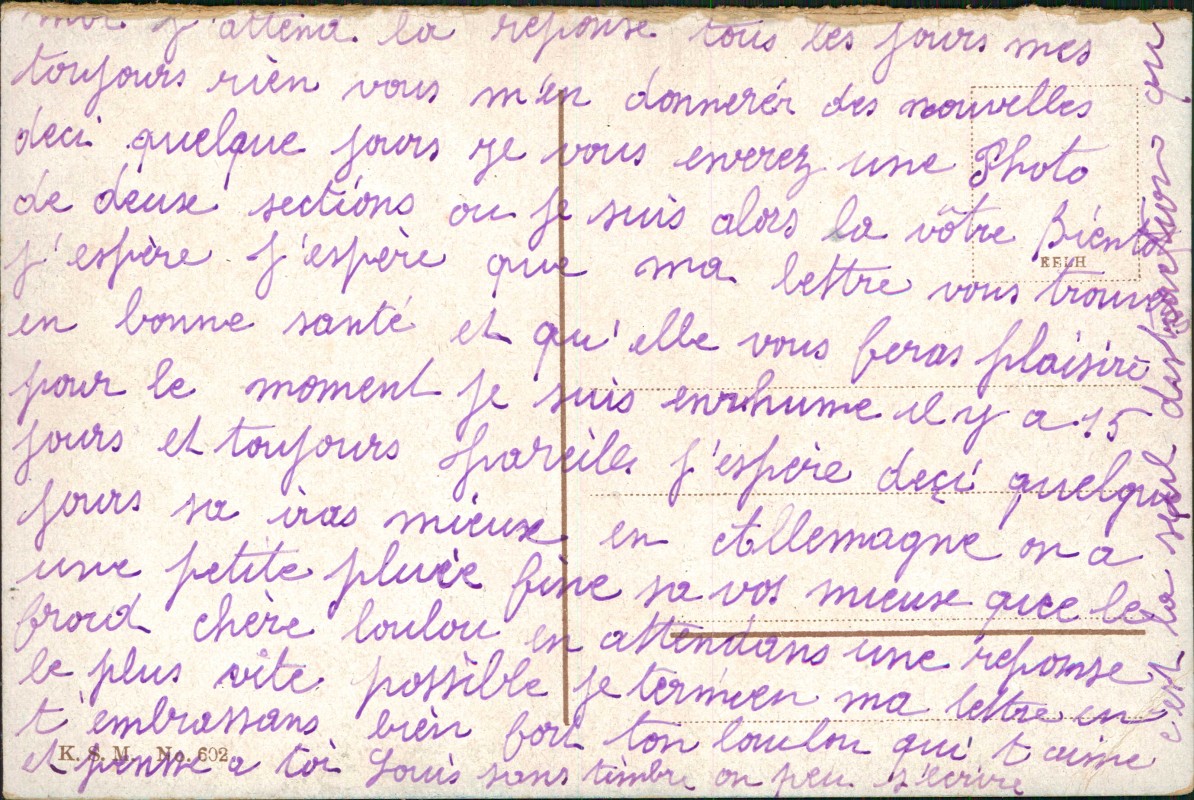 moi j'attend la reponse tous les jours mes
toujours rièn vous m'en donnerér des nouvelles
deci quelque jours je vous enverez une Photo
de deuxe sections ou je suis alors la vôtre Bientô
j'espère j'espère que ma lettre vous trouve
en bonne santé et qu'elle vous feras plaisire
pour le moment je suis enrhume il y a 15
jours et toujours pareille j'espère deçi quelque
jours sa iras mieux en Allemagne on a
une petite pluie fine sa vos mieuse que le
froid chère loulou en attendans une reponse
le plus vite possible je termien ma lettre en
t'embrassans bièn fort ton loulou qui t'aime
et pense a toi Louis sans timbre on peu s'écrire
c'est la seul distraction qu
KFLH
K. S. M. No. 602